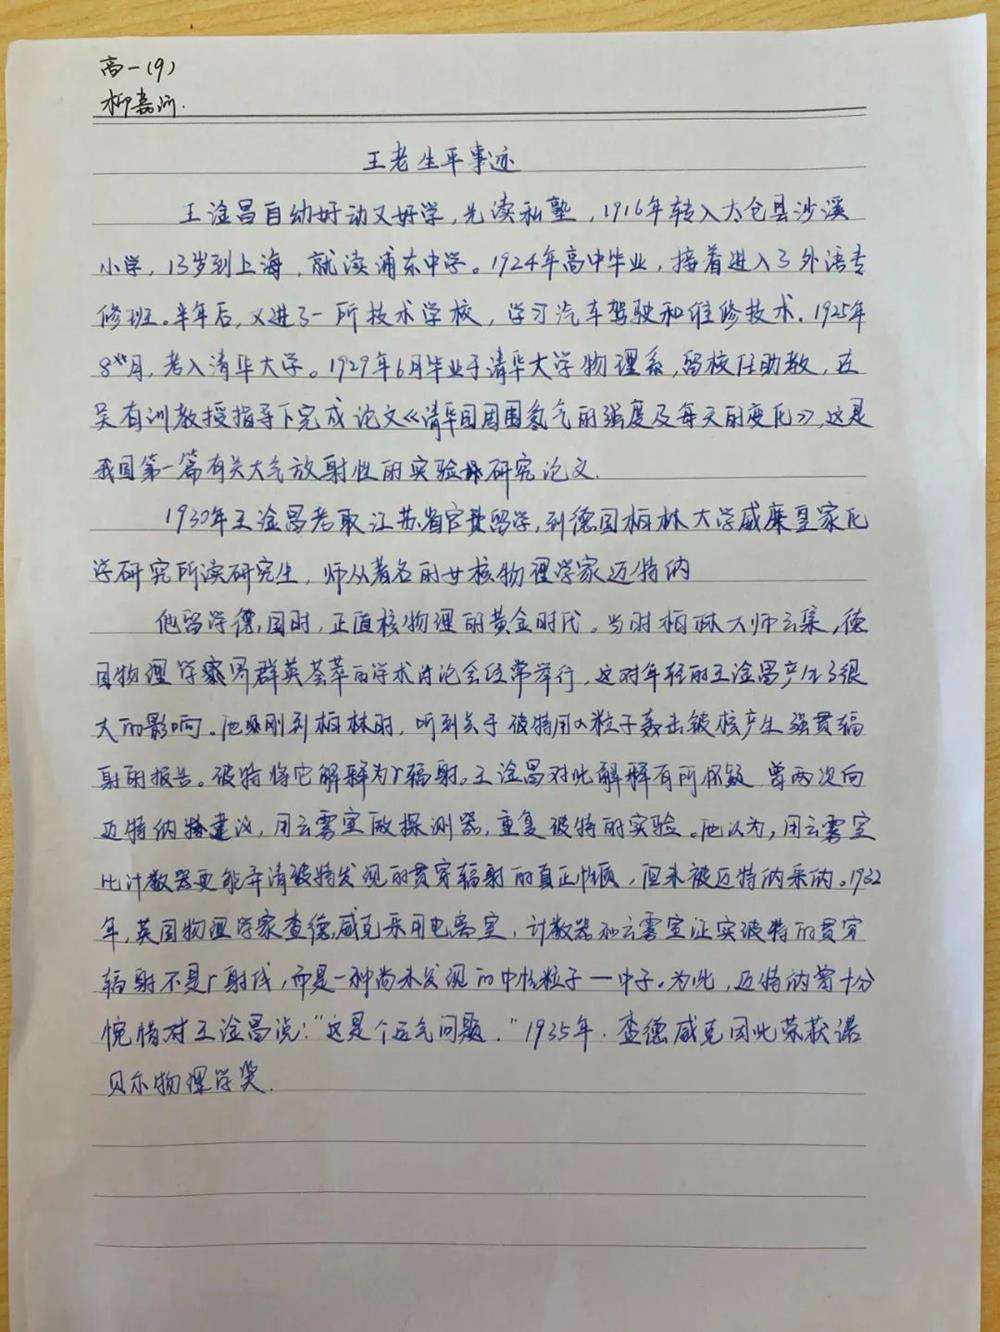 高一(9)
柳嘉沂.
王老生平事迹
王淦昌自幼好动又好学,先读私塾,1916年转入太仓县沙溪
小学,13岁到上海,就读浦东中学。1924年高中毕业,接着进入了外语专
修班。半年后,又进了一所技术学校,学习汽车驾驶和维修技术.1925年
8月,考入清华大学。1929年6月毕业于清华大学物理系,留校任助教,在
吴有训教授指导下完成论文《清华园周围氡气的强度及每天的变化》,这是
我国第一篇有关大气放射性的实验研究论文.
1930年王淦昌考取江苏省官费留学,到德国柏林大学威廉皇家化
学研究所读研究生,师从著名的女核物理学家迈特纳
他留学德国时,正值核物理的黄金时代。当时柏林大师云集,德
国物理学界群英荟萃的学术讨论会经常举行,这对年轻的王淦昌产生了很
大的影响。他刚到柏林时,听到关于波特用α粒子轰击铍核产生强贯辐
射的报告。波特将它解释为r辐射。王淦昌对此解释有所怀疑 曾两次向
迈特纳建议,用云雾室做探测器,重复波特的实验。他认为,用云雾室
比计数器更能弄清波特发现的贯穿辐射的真正性质,但未被迈特纳采纳。1932
年,英国物理学家查德威克采用电离室,计数器和云雾室证实波特的贯穿
辐射不是r射线,而是一种尚未发现的中性粒子一中子。为此,迈特纳曾十分
惋惜对王淦昌说:“这是个运气问题.”1935年.查德威克因此荣获诺
贝尔物理学奖.